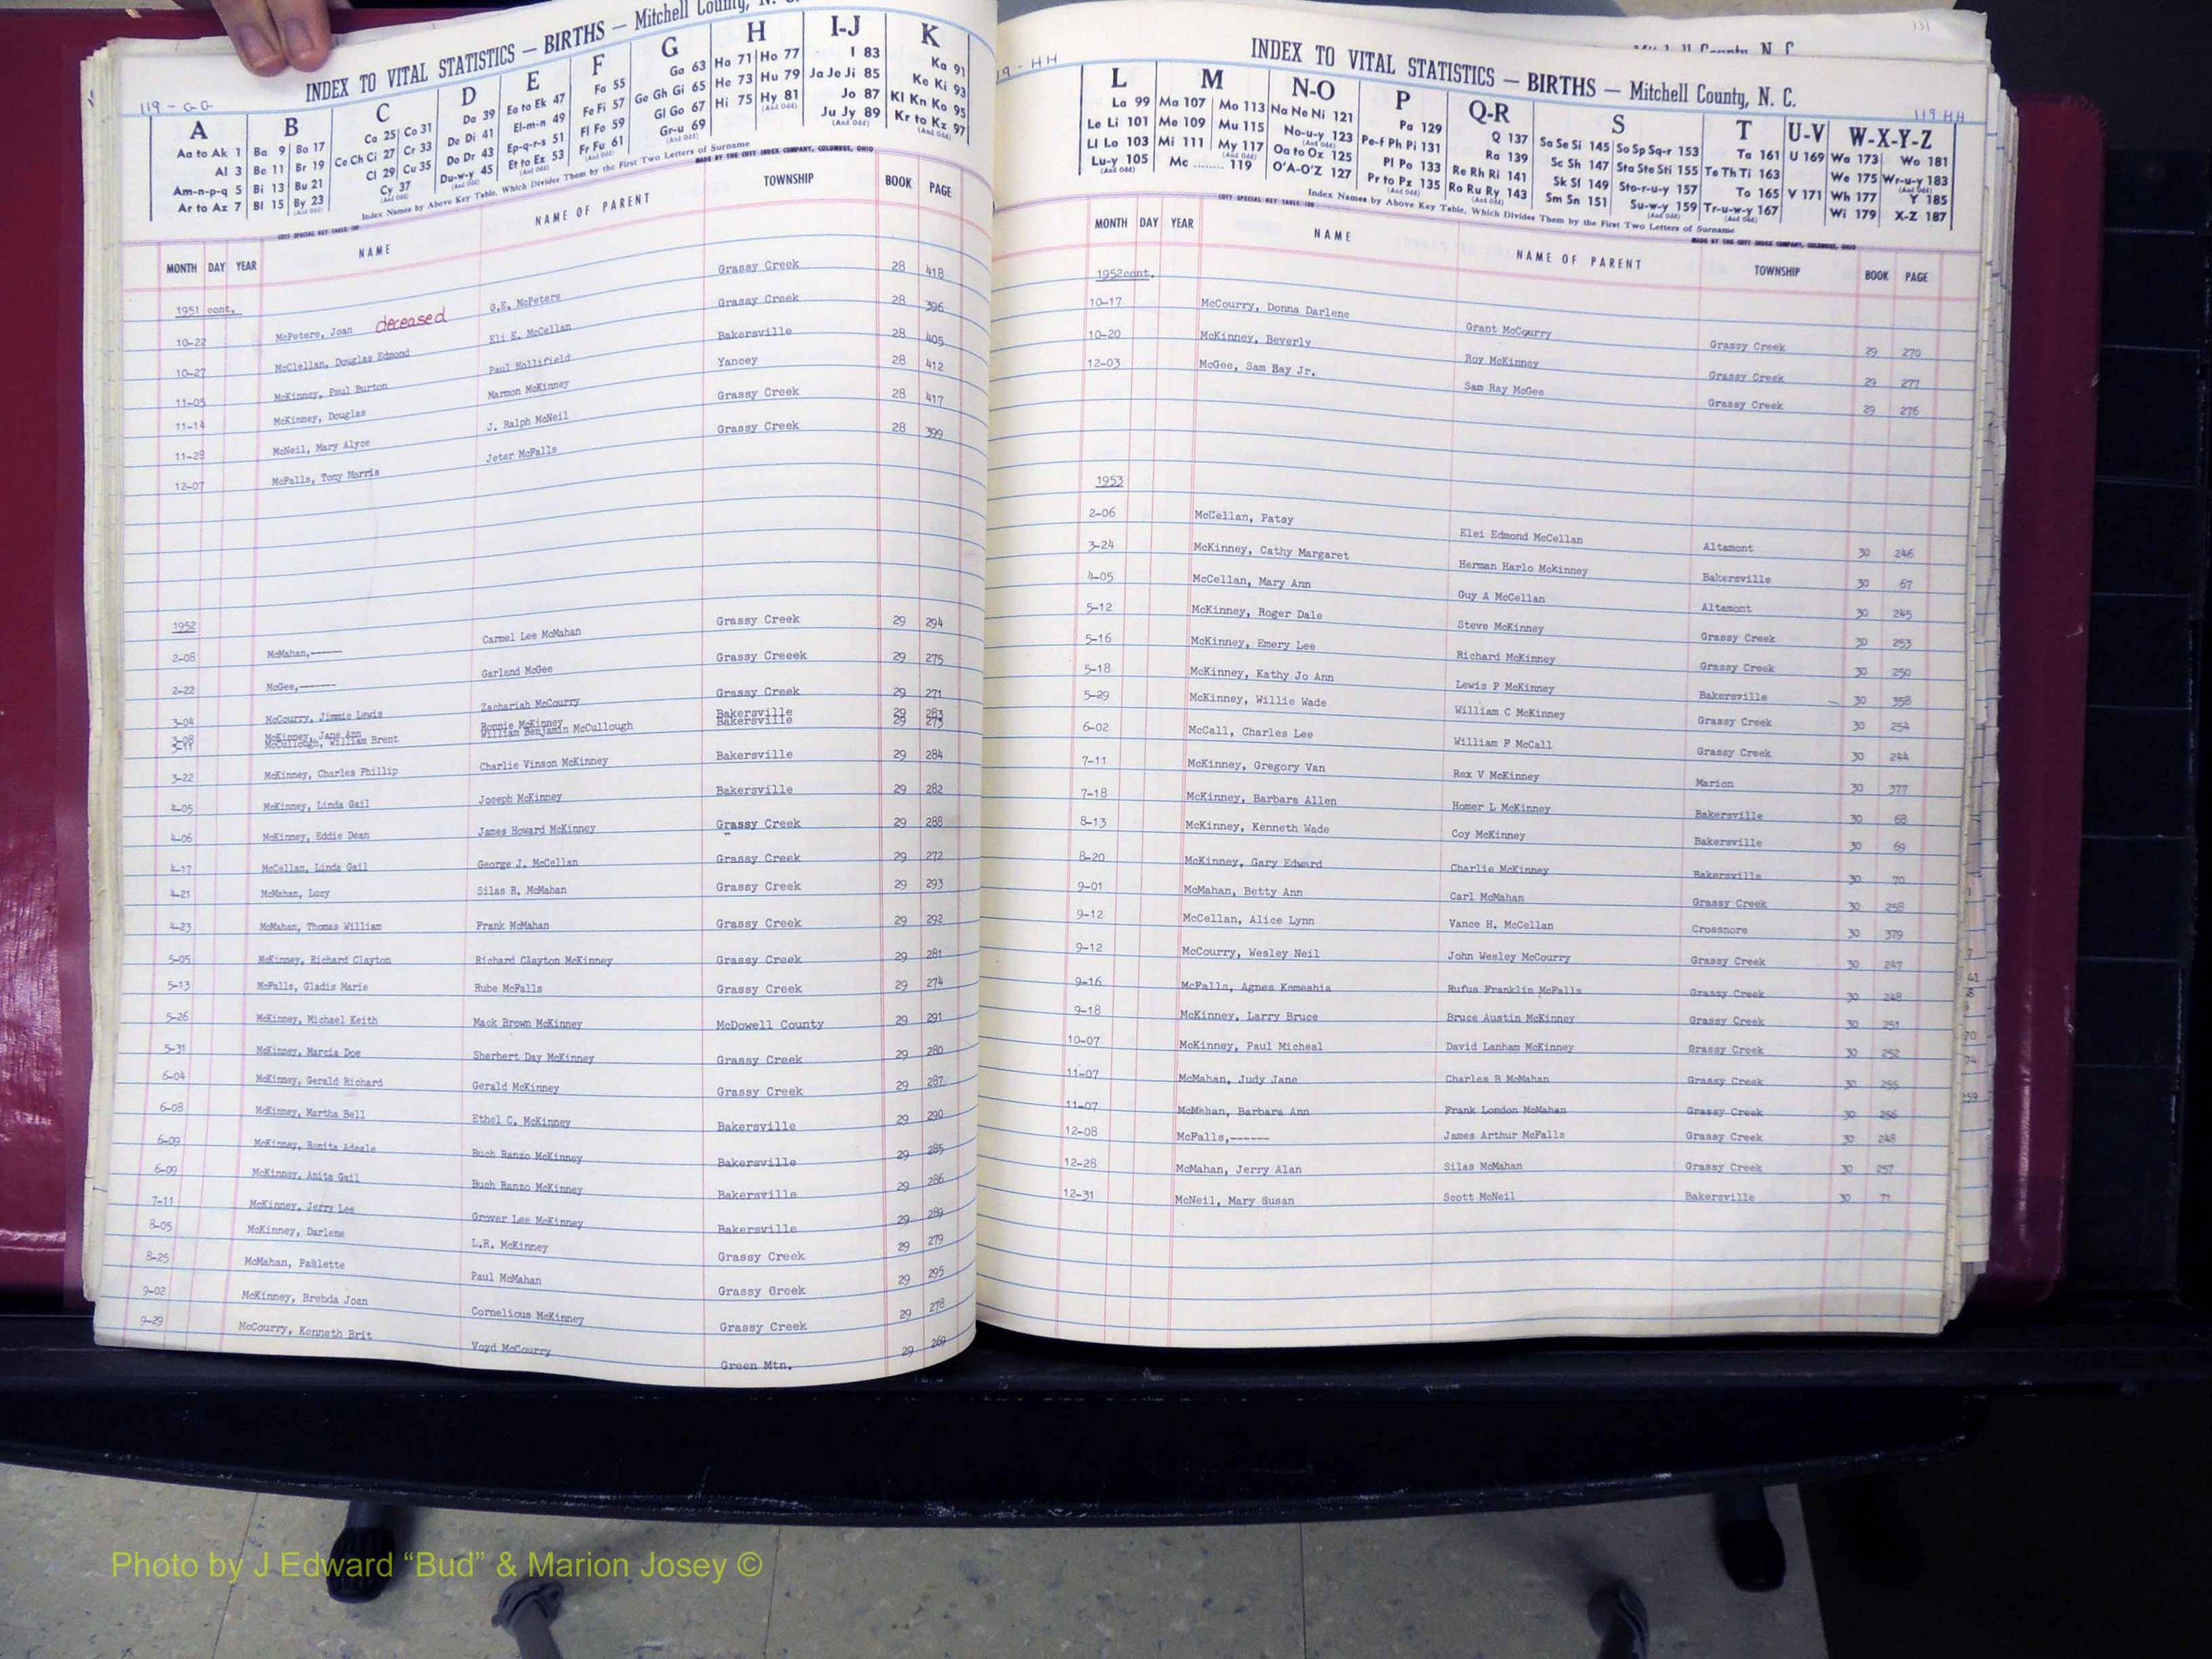 INDEX TO VITAL STATISTICS — BIRTHS — Mitchell County, N. C.
119 - GG
A B C D E F G H I-J K
Aa to Ak 1 Ba 9 Bo 17 Ca 25 Co 31 Da 39 Ea to Ek 47 Fa 55 Ga 63 Ha 71 Ho 77 I 83 Ka 91
Al 3 Be 11 Br 19 Ce Ch Ci 27 Cr 33 De Di 41 El-m-n 49 Fe Fi 57 Ge Gh Gi 65 He 73 Hu 79 Ja Je Ji 85 Ke Ki 93
Am-n-p-q 5 Bi 13 Bu 21 Cl 29 Cu 35 Do Dr 43 Ep-q-r-s 51 Fl Fo 59 Gl Go 67 Hi 75 Hy 81 Jo 87 Kl Kn Ko 95
Ar to Az 7 Bl 15 By 23 Cy 37 Du-w-y 45 Et to Ez 53 Fr Fu 61 Gr-u 69 Ju Jy 89 Kr to Kz 97
Index Names by Above Key Table, Which Divides Them by the First Two Letters of Surname
MADE BY THE COTT INDEX COMPANY, COLUMBUS, OHIO
MONTH DAY YEAR NAME NAME OF PARENT TOWNSHIP BOOK PAGE
1951 cont.
10-22 McPeters, Joan deceased G.E. McPeters Grassy Creek 28 418
10-27 McClellan, Douglas Edmond Eli E. McCellan Grassy Creek 28 396
11-05 McKinney, Paul Burton Paul Hollifield Bakersville 28 405
11-14 McKinney, Douglas Marmon McKinney Yancey 28 412
11-28 McNeil, Mary Alyce J. Ralph McNeil Grassy Creek 28 417
12-07 McFalls, Tony Morris Jeter McFalls Grassy Creek 28 399
1952
2-08 McMahan,----- Carmel Lee McMahan Grassy Creek 29 294
2-22 McGee,------ Garland McGee Grassy Creeek 29 275
3-04 McCourry, Jimmie Lewis Zachariah McCourry Grassy Creek 29 271
3-08 McKinney, Jane Ann Ronnie McKinney Bakersville 29 283
3-11 McCullough, William Brent William Benjamin McCullough Bakersville 29 273
3-22 McKinney, Charles Phillip Charlie Vinson McKinney Bakersville 29 284
4-05 McKinney, Linda Gail Joseph McKinney Bakersville 29 282
4-06 McKinney, Eddie Dean James Howard McKinney Grassy Creek 29 288
4-17 McCellan, Linda Gail George J. McCellan Grassy Creek 29 272
4-21 McMahan, Lucy Silas R. McMahan Grassy Creek 29 293
4-23 McMahan, Thomas William Frank McMahan Grassy Creek 29 292
5-05 McKinney, Richard Clayton Richard Clayton McKinney Grassy Creek 29 281
5-13 McFalls, Gladis Marie Rube McFalls Grassy Creek 29 274
5-26 McKinney, Michael Keith Mack Brown McKinney McDowell County 29 291
5-31 McKinney, Marcia Doe Sherbert Day McKinney Grassy Creek 29 280
6-04 McKinney, Gerald Richard Gerald McKinney Grassy Creek 29 287
6-08 McKinney, Martha Bell Ethel C. McKinney Bakersville 29 290
6-09 McKinney, Bonita Adeale Buch Ranzo McKinney Bakersville 29 285
6-09 McKinney, Anita Gail Buch Ranzo McKinney Bakersville 29 286
7-11 McKinney, Jerry Lee Grover Lee McKinney Bakersville 29 289
8-05 McKinney, Darlene L.R. McKinney Grassy Creek 29 279
8-25 McMahan, Paulette Paul McMahan Grassy Creek 29 295
9-02 McKinney, Brebda Joan Cornelious McKinney Grassy Creek 29 278
9-29 McCourry, Kenneth Brit Voyd McCourry Green Mtn. 29 269
131
Mitchell County, N. C.
19-HH
INDEX TO VITAL STATISTICS — BIRTHS — Mitchell County, N. C.
119 HH
L M N-O P Q-R S T U-V W-X-Y-Z
La 99 Ma 107 Mo 113 Na Ne Ni 121 Pa 129 Q 137 Sa Se Si 145 So Sp Sq-r 153 Ta 161 U 169 Wa 173 Wo 181
Le Li 101 Me 109 Mu 115 No-u-y 123 Pe-f Ph Pi 131 Ra 139 Sc Sh 147 Sta Ste Sti 155 Te Th Ti 163 We 175 Wr-u-y 183
Ll Lo 103 Mi 111 My 117 Oa to Oz 125 Pl Po 133 Re Rh Ri 141 Sk Sl 149 Sto-r-u-y 157 To 165 V 171 Wh 177 Y 185
Lu-y 105 Mc ........ 119 O'A-O'Z 127 Pr to Pz 135 Ro Ru Ry 143 Sm Sn 151 Su-w-y 159 Tr-u-w-y 167 Wi 179 X-Z 187
Index Names by Above Key Table, Which Divides Them by the First Two Letters of Surname
MADE BY THE COTT INDEX COMPANY, COLUMBUS, OHIO
MONTH DAY YEAR NAME NAME OF PARENT TOWNSHIP BOOK PAGE
1952cont.
10-17 McCourry, Donna Darlene Grant McCourry Grassy Creek 29 270
10-20 McKinney, Beverly Roy McKinney Grassy Creek 29 277
12-03 McGee, Sam Ray Jr. Sam Ray McGee Grassy Creek 29 276
1953
2-06 McCellan, Patsy Elei Edmond McCellan Altamont 30 246
3-24 McKinney, Cathy Margaret Herman Harlo Mckinney Bakersville 30 67
4-05 McCellan, Mary Ann Guy A McCellan Altamont 30 245
5-12 McKinney, Roger Dale Steve McKinney Grassy Creek 30 253
5-16 McKinney, Emery Lee Richard McKinney Grassy Creek 30 250
5-18 McKinney, Kathy Jo Ann Lewis P McKinney Bakersville 30 358
5-29 McKinney, Willie Wade William C McKinney Grassy Creek 30 254
6-02 McCall, Charles Lee William F McCall Grassy Creek 30 244
7-11 McKinney, Gregory Van Rex V McKinney Marion 30 377
7-18 McKinney, Barbara Allen Homer L McKinney Bakersville 30 68
8-13 McKinney, Kenneth Wade Coy McKinney Bakersville 30 69
8-20 McKinney, Gary Edward Charlie McKinney Bakersville 30 70
9-01 McMahan, Betty Ann Carl McMahan Grassy Creek 30 258
9-12 McCellan, Alice Lynn Vance H. McCellan Crossnore 30 379
9-12 McCourry, Wesley Neil John Wesley McCourry Grassy Creek 30 247
9-16 McFalls, Agnes Komeshia Rufus Franklin McFalls Grassy Creek 30 248
9-18 McKinney, Larry Bruce Bruce Austin McKinney Grassy Creek 30 251
10-07 McKinney, Paul Micheal David Lanham McKinney Grassy Creek 30 252
11-07 McMahan, Judy Jane Charles B McMahan Grassy Creek 30 255
11-07 McMahan, Barbara Ann Frank London McMahan Grassy Creek 30 256
12-08 McFalls,------ James Arthur McFalls Grassy Creek 30 248
12-28 McMahan, Jerry Alan Silas McMahan Grassy Creek 30 257
12-31 McNeil, Mary Susan Scott McNeil Bakersville 30 71
Photo by J Edward “Bud” & Marion Josey ©